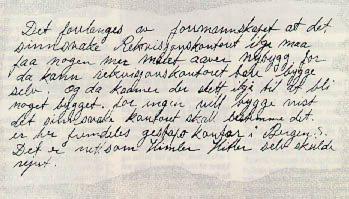 Det forelanges av formannskapet at det
sinnsvake Rekvisjonskontoret ikje maa
faa nogen mer makt aaver nybygg for
da kann rekvisjonskontoret bare bygge
selv. Og da kaamer der slett ikje til at bli
noget bygget. for ingen vill bygge mist
det sinnsvake kontoret skall bestemme det.
er her fremdeles gestapo kontor i Bergen?.
Det er nett som Himler Hitler selv skulde
rejnt.